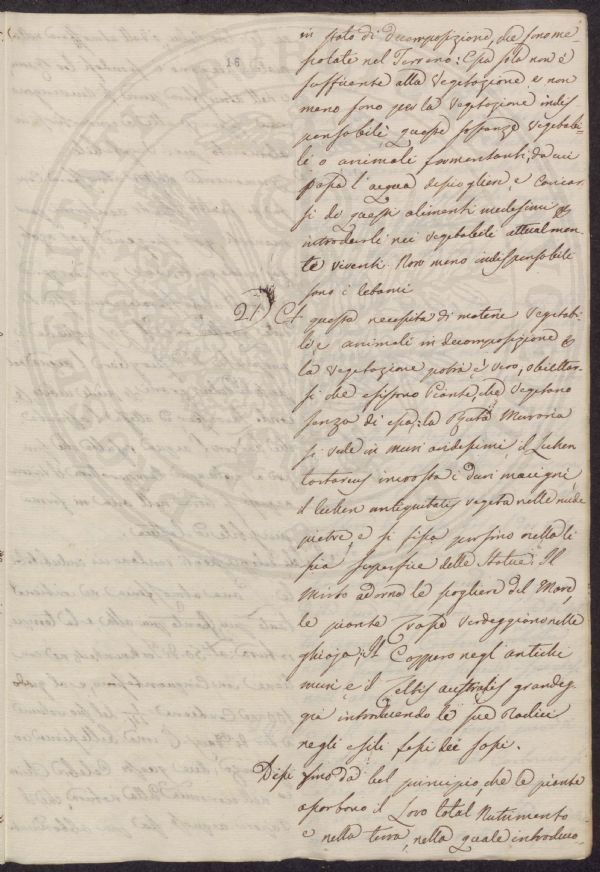 16
in stato di decomposizione, che sono me-
scolate nel Terreno: Essa sola non è
sufficiente alla Vegetazione, e non
meno sono per la Vegetazione indis-
pensabili queste sostanze Vegetabi-
li o animali fermentanti, da cui
possa l'acqua disciogliere, e caricar-
si di questi alimenti medesimi, e
introdurli nei Vegetabili attualmen-
te viventi. Non meno indispensabili
sono i letami
21) A questa necessità di materie Vegetabi-
li, e animali in decomposizione
la Vegetazione potrà è vero, obiettar-
si che esistono Piante, che Vegetano
senza di esse: la Ruta Muraria
si vede in muri aridissimi, il Lichen
tartareus incrosta i duri macigni,
il Lichen antiquitatis vegeta nelle nude
pietre, e si fissa persino nella li-
scia superficie delle Statue: Il
Mirto adorna le scogliere del Mare,
le piante grasse verdeggiano nelle
ghiaja; Il Cappero negli antichi
muri, e il Celtis australis grandeg-
gia introducendo le sue Radici
negli esili fessi dei sassi.
Dissi sino da bel principio, che le piante
assorbono il Loro total Nutrimento
e nella terra, nella quale introduco-